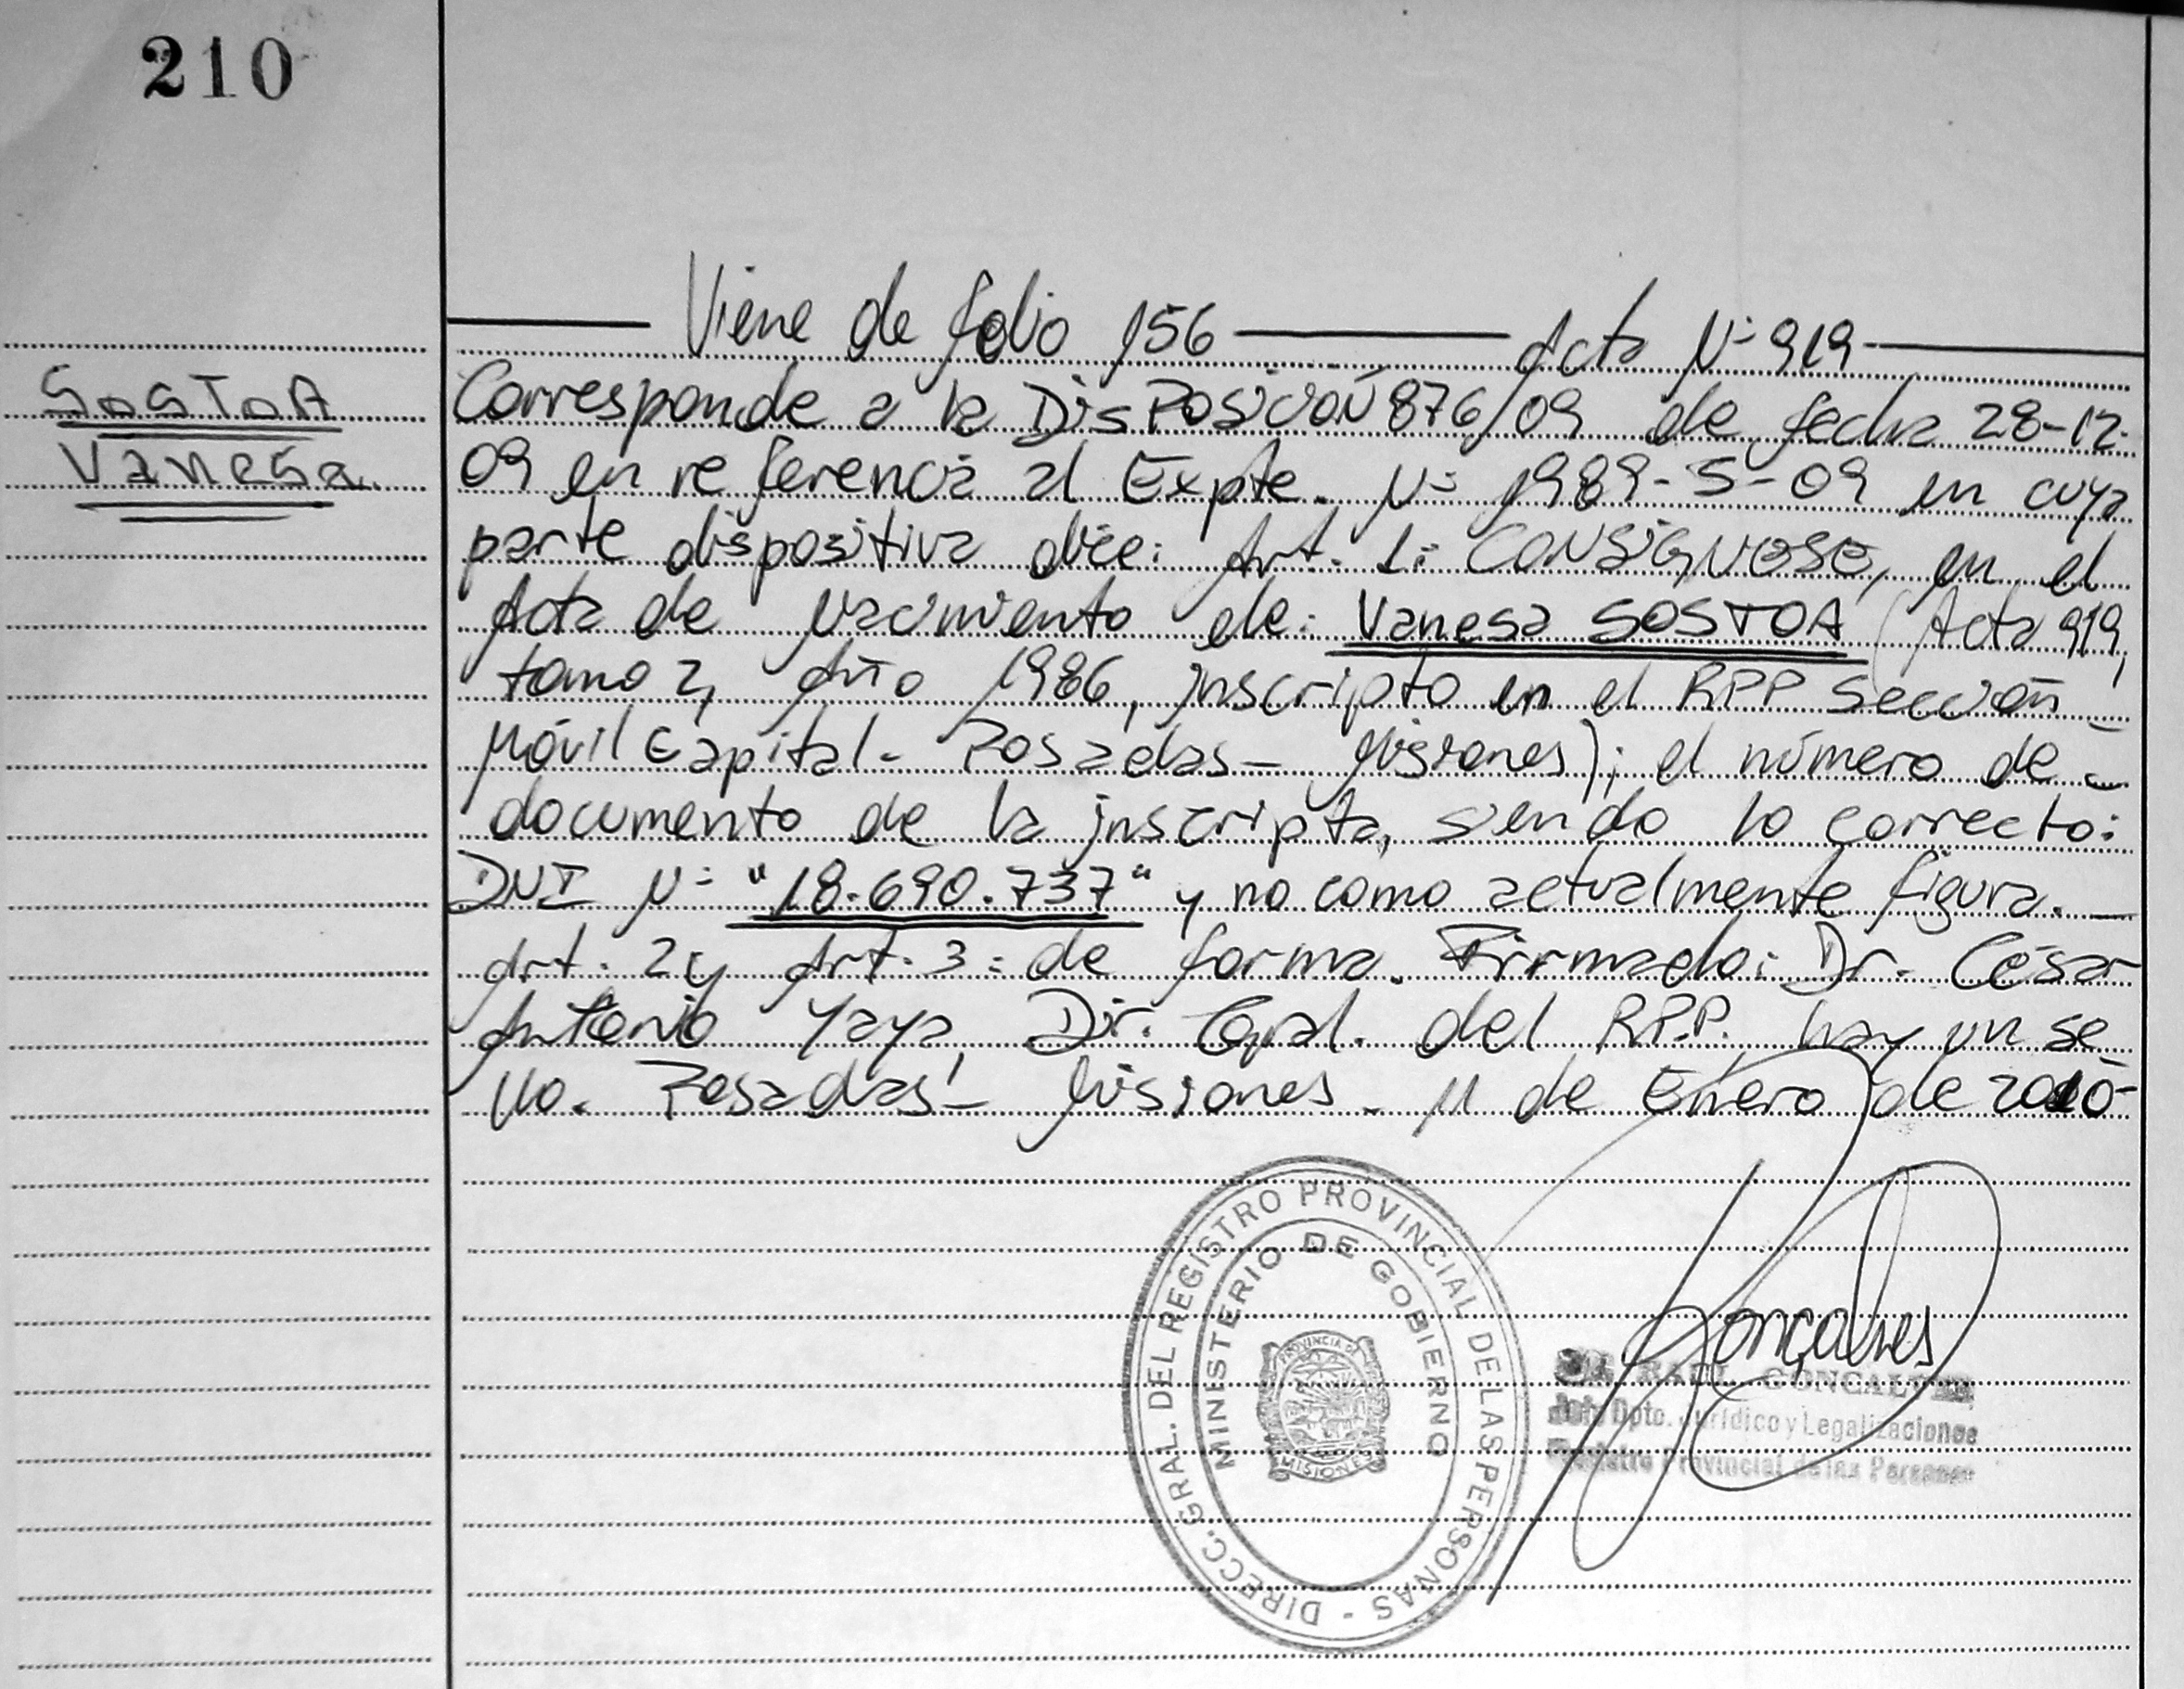 210
Viene de folio 156 Acta N= 919
SOSTOA
Vanesa.
Corresponde a la DisPosicioN 876/09 de fecha 28-12-
09 en referencia al Expte. N= 1989-S-09 en cuya
parte dispositiva dice: Art. 1: CONSIGNESE, en el
Acta de Nacimiento de: Vanesa SOSTOA (Acta 919,
tomo 2, Año 1986, inscripto en el RPP Sección
Móvil Capital- Posadas- Misiones); el número de-
documento de la inscripta, siendo lo correcto:
DNI N= "18.690.737" y no como actualmente figura.-
Art. 2 y Art. 3: de forma. Firmado: Dr. César
Antonio Yaya, Dir. Gral. del RP.P. hay un se
llo. Posadas- Misiones. 11 de Enero de 2010-
DIRECC. GRAL. DEL REGISTRO PROVINCIAL DE LAS PERSONAS -
MINISTERIO DE GOBIERNO
PROVINCIA D
MISIONES
Gonçalves
RAUL GONCALVES
Jefe Dpto. Jurídico y Legalizaciones
Registro Provincial de las Personas